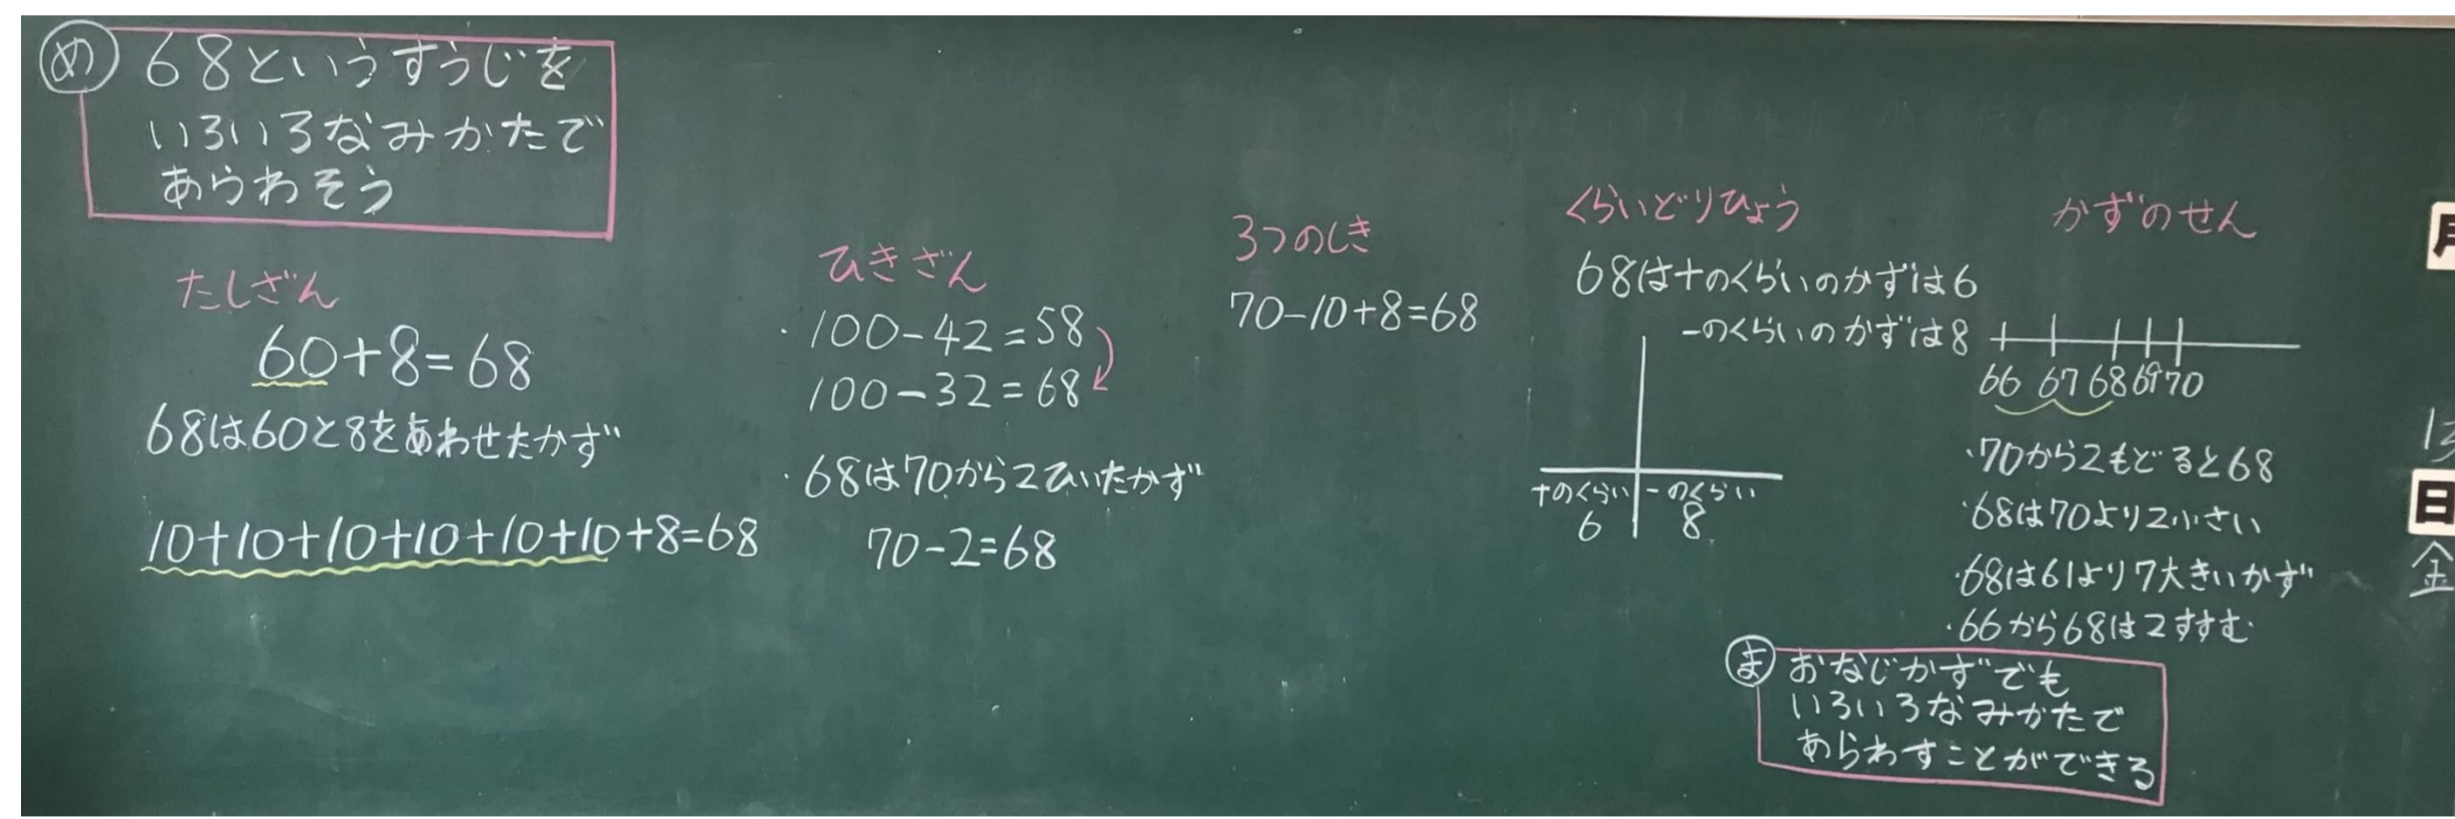 め 68というすうじを
いろいろなみかたで
あらわそう
たしざん
60+8=68
68は60と8をあわせたかず
10+10+10+10+10+10+8=68
ひきざん
・100-42=58
100-32=68
・68は70から2ひいたかず
70-2=68
3つのしき
70-10+8=68
くらいどりひょう
68は十のくらいのかずは6
一のくらいのかずは8
十のくらい 一のくらい
6 8
かずのせん
66 67 68 69 70
・70から2もどると68
・68は70より2小さい
・68は61より7大きいかず
・66から68は2すすむ
ま おなじかずでも
いろいろなみかたで
あらわすことができる
日
金